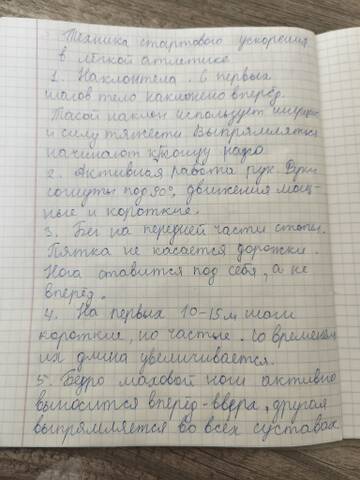 Техника стартового ускорения
в лёгкой атлетике
1. Наклонтела. В первых
шагов тело наклонено вперёд.
Такой наклон использует инерцию
и силу тяжести. Выпрямляться
начинают к концу
2. Активная работа рук. Руки
согнуты под 90°, движения мощ-
ные и короткие.
3. Бег на передней части стопы.
Пятка не касается дорожки.
Нога ставится под себя, а не
вперёд.
4. На первых 10-15 м шаги
короткие, но частые. Со временем
их длина увеличивается.
5. Бедро маховой ноги активно
выносится вперёд-вверх, другая
выпрямляется во всех суставах